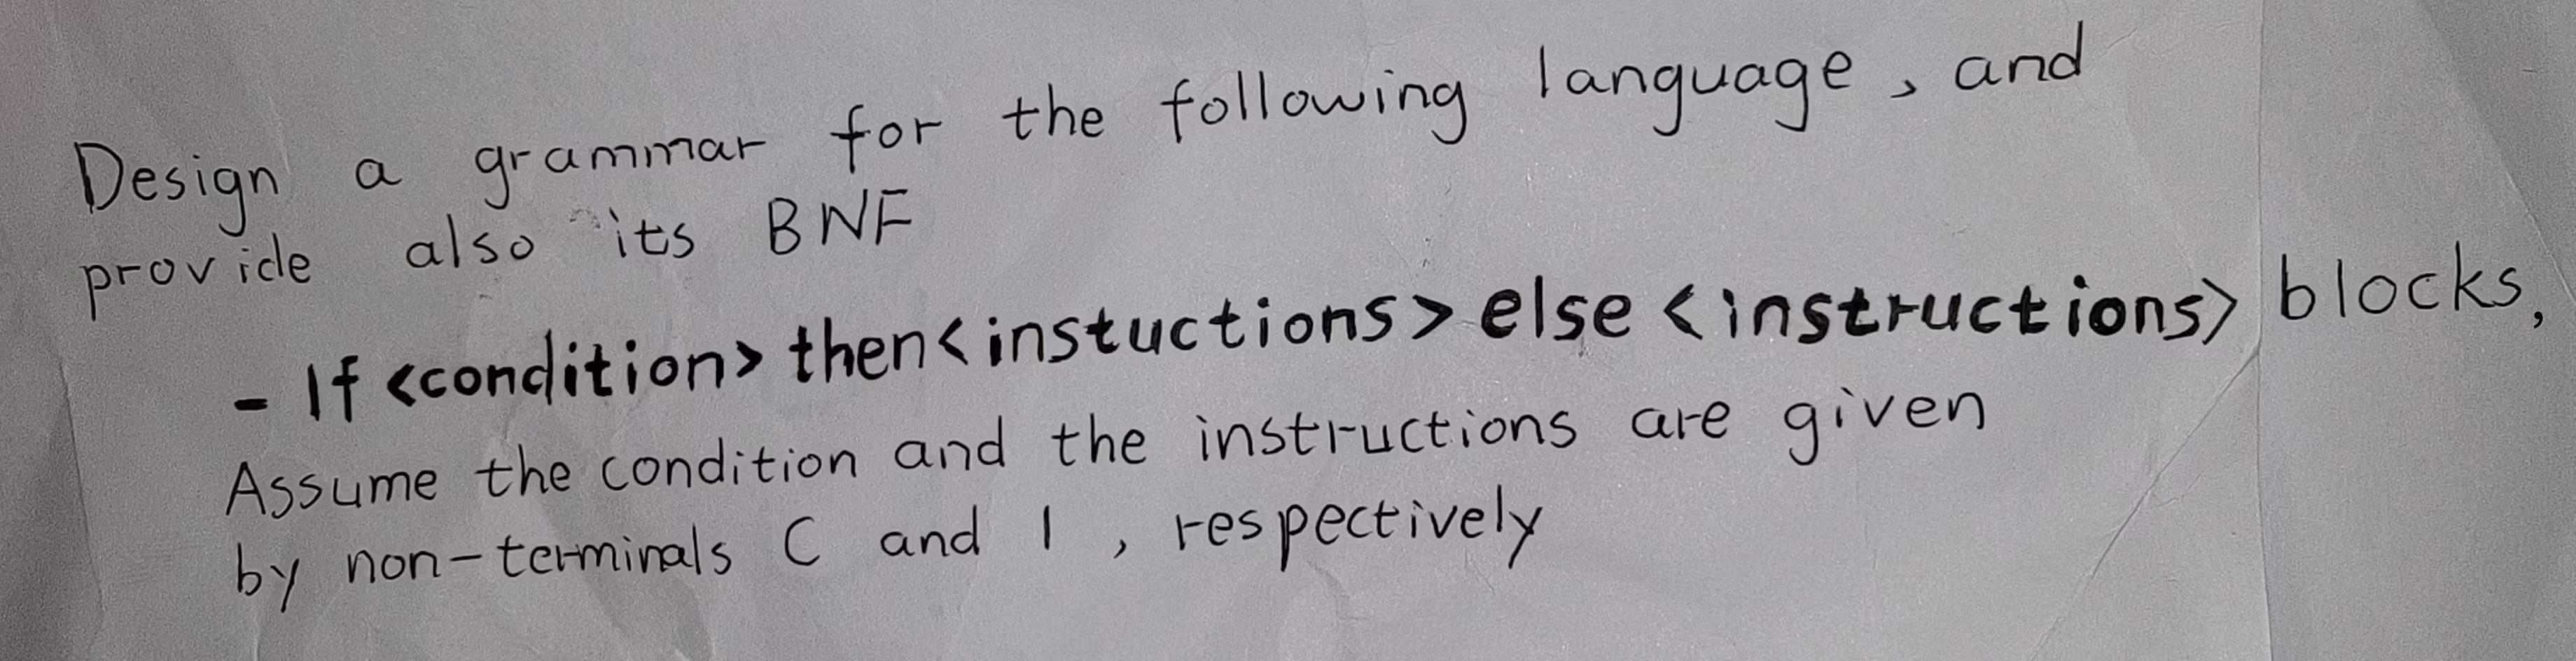 Design a grammar for the following language, and
provide also its BNF
- If <condition> then <instuctions> else <instructions> blocks,
Assume the condition and the instructions are given
by non-terminals C and I, respectively